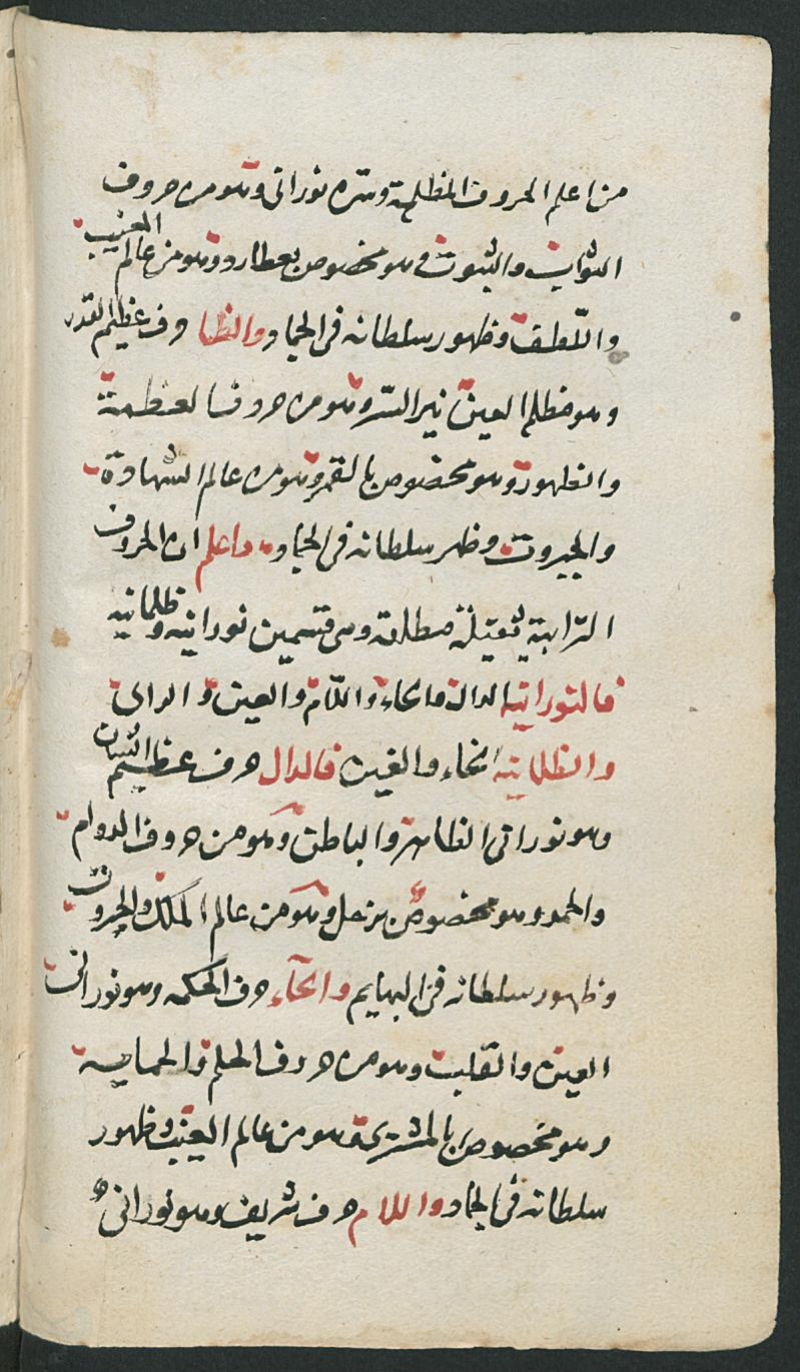 من اعلم الحروف المظلمة وسره نورانى وهو من حروف
الثوابت والثبوت وهو مخصوص بعطارد وهو من عالم الغيب
واللطف وظهور سلطانه فى الجماد والظا حرف عظيم القدر
وهو مظلم العين نير السر وهو من حروف العظمة
والظهور وهو مخصوص بالقمر وهو من عالم الشهادة
والجبروت وظهر سلطانه فى الجماد واعلم ان الحروف
الترابية ثقيلة مطلقة وهى قسمين نورانيه وظلمانيه
فالنورانية الدال والحاء واللام والعين والراى
والظلمانيه الخاء والغين فالدال حرف عظيم الشان
وهو نورانى الظاهر والباطن وهو من حروف الدوام
والحمد وهو مخصوص بزحل وهو من عالم الملك والجبروت
وظهور سلطانه فى البهايم والحآء حرف الحكمه وهو نورانى
العين والقلب وهو من حروف الحلم والحمايه
وهو مخصوص بالمشترى وهو من عالم الغيب وظهور
سلطانه فى الجماد واللام حرف شريف وهو نورانى